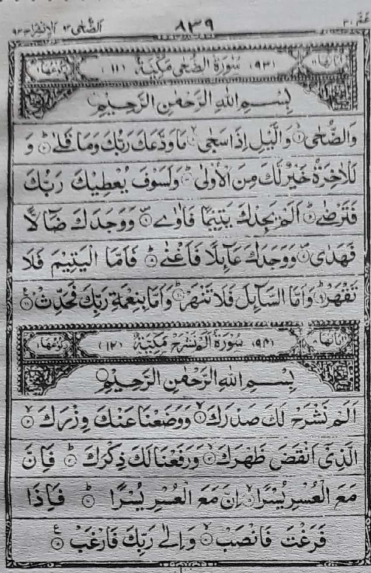 عَمَّ ٣٠ ٨٣٩ اَلضُّحٰى ٩٣ اَلْاِنْشِرَاح ٩٤
اٰيَاتُهَا (٩٣) سُوْرَةُ الضُّحٰى مَكِّيَّةٌ (١١) رُكُوْعُهَا
بِسْمِ اللهِ الرَّحْمٰنِ الرَّحِيْمِ
وَالضُّحٰى ۙ وَالَّيْلِ اِذَا سَجٰى ۙ مَا وَدَّعَكَ رَبُّكَ وَمَا قَلٰى ؕ وَ
لَلْاٰخِرَةُ خَيْرٌ لَّكَ مِنَ الْاُوْلٰى ؕ وَلَسَوْفَ يُعْطِيْكَ رَبُّكَ
فَتَرْضٰى ؕ اَلَمْ يَجِدْكَ يَتِيْمًا فَاٰوٰى ۪ وَوَجَدَكَ ضَآلًّا
فَهَدٰى ۪ وَوَجَدَكَ عَآئِلًا فَاَغْنٰى ؕ فَاَمَّا الْيَتِيْمَ فَلَا
تَقْهَرْ ؕ وَاَمَّا السَّآئِلَ فَلَا تَنْهَرْ ؕ وَاَمَّا بِنِعْمَةِ رَبِّكَ فَحَدِّثْ
اٰيَاتُهَا (٩٤) سُوْرَةُ اَلَمْ نَشْرَحْ مَكِّيَّةٌ (١٢) رُكُوْعُهَا
بِسْمِ اللهِ الرَّحْمٰنِ الرَّحِيْمِ
اَلَمْ نَشْرَحْ لَكَ صَدْرَكَ ۙ وَوَضَعْنَا عَنْكَ وِزْرَكَ ۙ
الَّذِيْٓ اَنْقَضَ ظَهْرَكَ ۙ وَرَفَعْنَا لَكَ ذِكْرَكَ ؕ فَاِنَّ
مَعَ الْعُسْرِ يُسْرًا ۙ اِنَّ مَعَ الْعُسْرِ يُسْرًا ؕ فَاِذَا
فَرَغْتَ فَانْصَبْ ۙ وَاِلٰى رَبِّكَ فَارْغَبْ